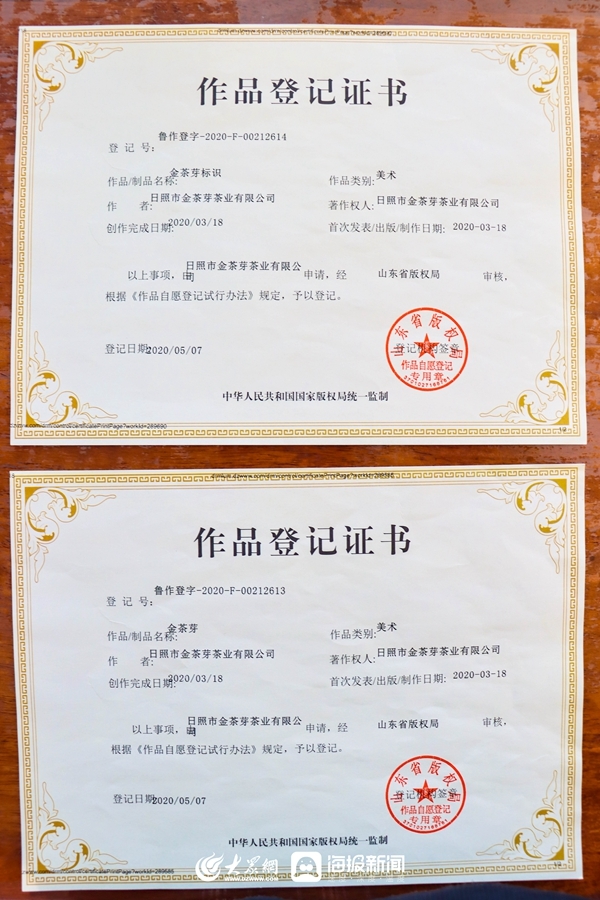 作品登记证书
鲁作登字-2020-F-00212614
登 记 号:
金茶芽标识
作品/制品名称:
作品类别:美术
作 者:日照市金茶芽茶业有限公司
著作权人:日照市金茶芽茶业有限公司
创作完成日期:2020/03/18
首次发表/出版/制作日期: 2020-03-18
以上事项,由日照市金茶芽茶业有限公司申请,经 山东省版权局 审核,
根据《作品自愿登记试行办法》规定,予以登记。
登记日期:2020/05/07
登记机构签章
山东省版权局
作品自愿登记
专用章
中华人民共和国国家版权局统一监制
作品登记证书
鲁作登字-2020-F-00212613
登 记 号:
金茶芽
作品/制品名称:
作品类别:美术
作 者:日照市金茶芽茶业有限公司
著作权人:日照市金茶芽茶业有限公司
创作完成日期:2020/03/18
首次发表/出版/制作日期: 2020-03-18
以上事项,由日照市金茶芽茶业有限公司申请,经 山东省版权局 审核,
根据《作品自愿登记试行办法》规定,予以登记。
登记日期:2020/05/07
登记机构签章
山东省版权局
作品自愿登记
专用章
中华人民共和国国家版权局统一监制
大众网 海报新闻